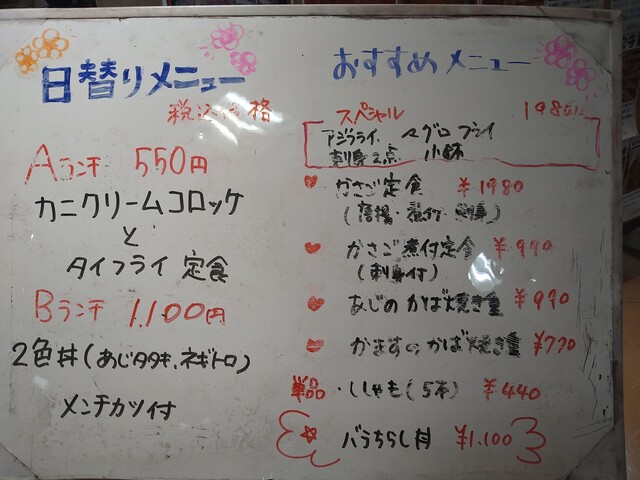 日替りメニュー
税込価格
Aランチ 550円
カニクリームコロッケ
と
タイフライ 定食
Bランチ 1,100円
2色丼(あじタタキ、ネギトロ)
メンチカツ付
おすすめメニュー
スペシャル 1980
アジフライ、マグロフライ
刺身2点 小鉢
かさご定食 ¥1980
(唐揚・煮付・刺身)
かさご煮付定食 ¥990
(刺身付)
あじのかば焼き重 ¥990
かますのかば焼き重 ¥770
単品・ししゃも(5本) ¥440
バラちらし丼 ¥1.100